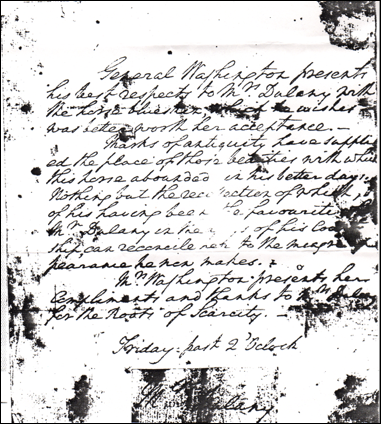 General Washington presents
his best respects to Mrs Dulany with
the horse blueskin which he wishes
was better worth her acceptance.—
Marks of antiquity have suppli
ed the place of those beauties with whic
this horse abounded in his better days.
Nothing but the recollection of which,
of his having been the favourite of
Mr Dulany in the of his Cou
ship, can reconcile to the meagre
pearance he now makes.—
Mrs Washington presents her
Compliments and thanks to Mrs Dulany
for the Roots of Scarcity.—
Friday past 2 Oclock